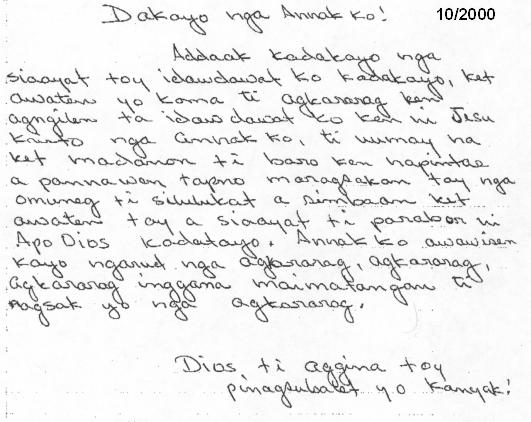 Dakayo nga Annak ko! 10/2000
Addaak kadakayo nga
siaayat toy idawdawat ko kadakayo, ket
awaten yo koma ti agkararag ken
agngilen ta idawdawat ko ken ni Jesu
Kristo nga Annak ko, ti iumay na
ket madanon ti baro ken napintas
a pannawen tapno maragsakan toy nga
omuneg ti silulukat a simbaan ket
awaten toy a siaayat ti parabor ni
Apo Dios kadatayo. Annak ko awawisen
kayo ngarud nga agkararag, agkararag,
agkararag inggana maimatangan ti
ragsak yo nga agkararag.
Dios ti aggina toy
pinagsubalet yo kanyak!